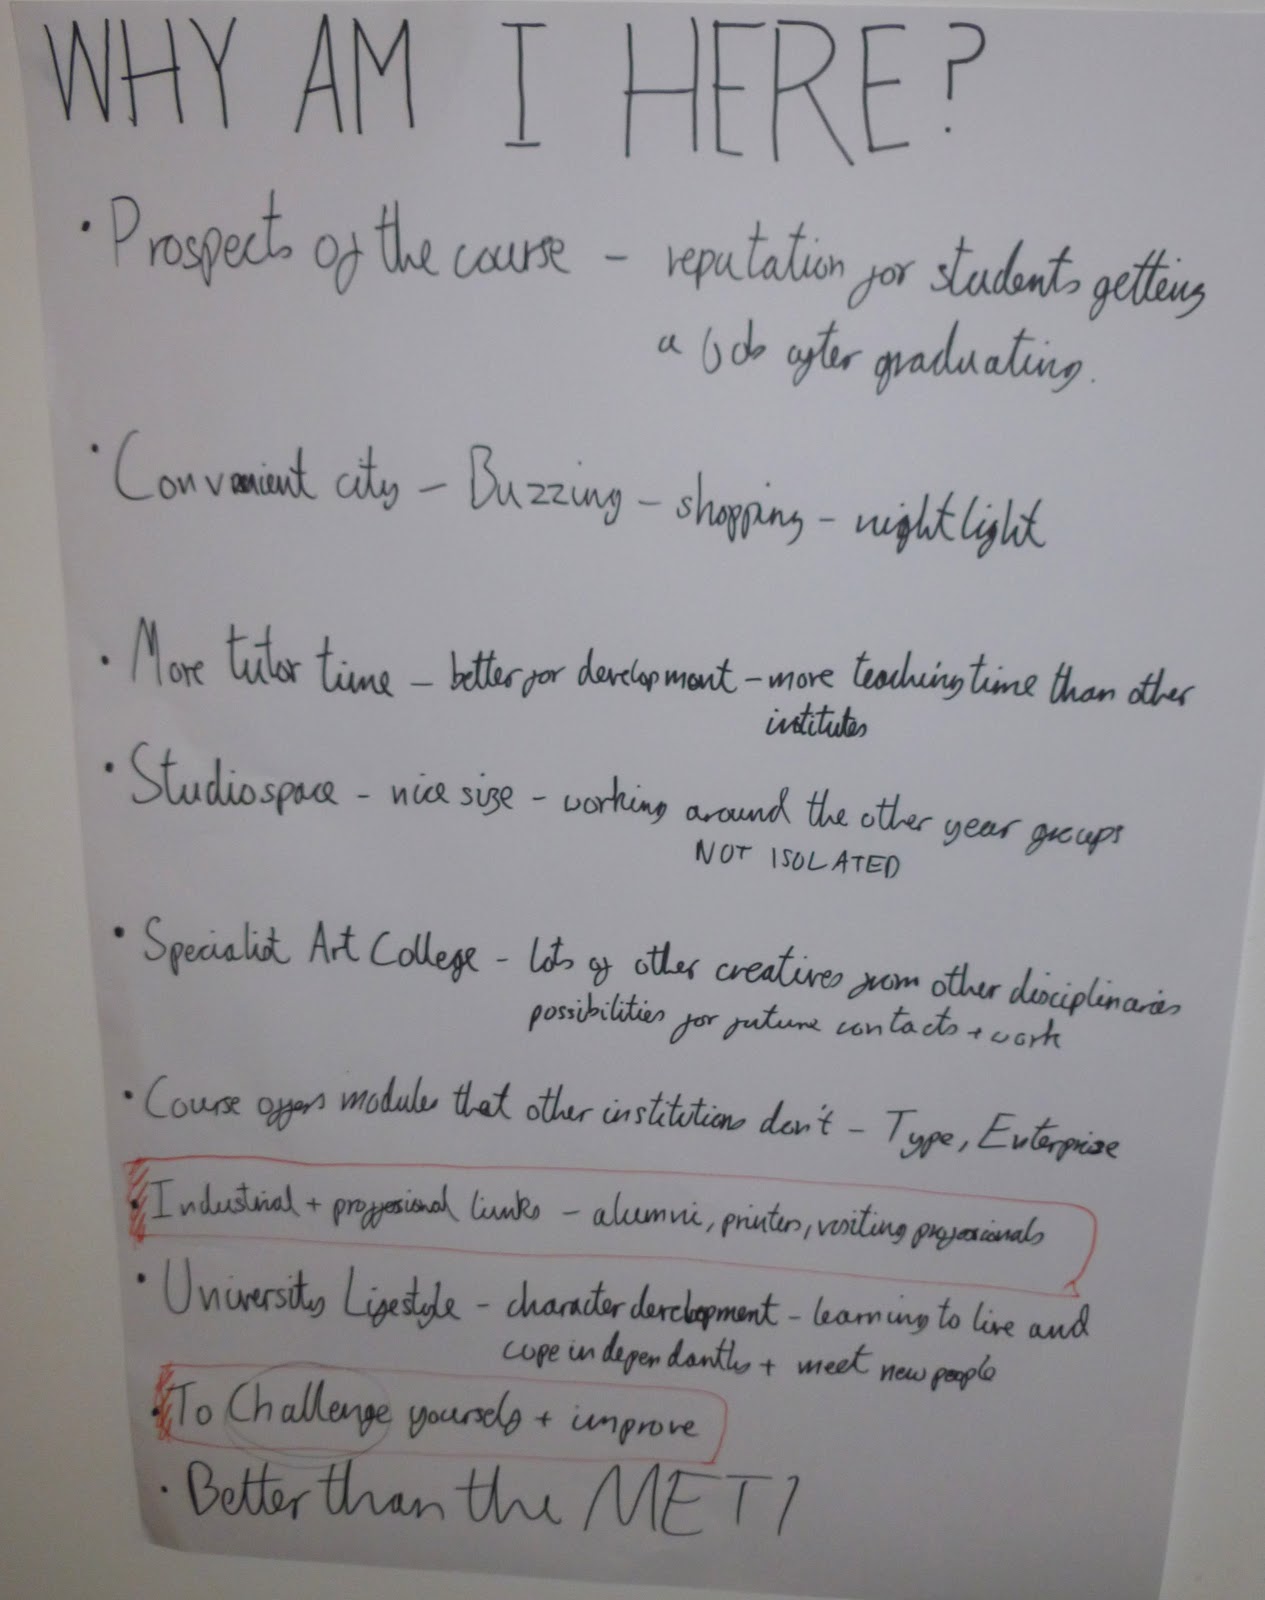 WHY AM I HERE?
• Prospects of the course - reputation for students getting
a Job after graduating.
• Convenient city - Buzzing - shopping - nightlight
• More tutor time - better for development - more teaching time than other
institutes
• Studiospace - nice size - working around the other year groups
NOT ISOLATED
• Specialist Art College - lots of other creatives from other disciplinaries
possibilities for future contacts + work
• Course offers modules that other institutions don't - Type, Enterprise
• Industrial + proffesional links - alumni, printers, visiting proffesionals
• University Lifestyle - character development - learning to live and
cope independantly + meet new people
• To Challenge yourself + improve
• Better than the MET!